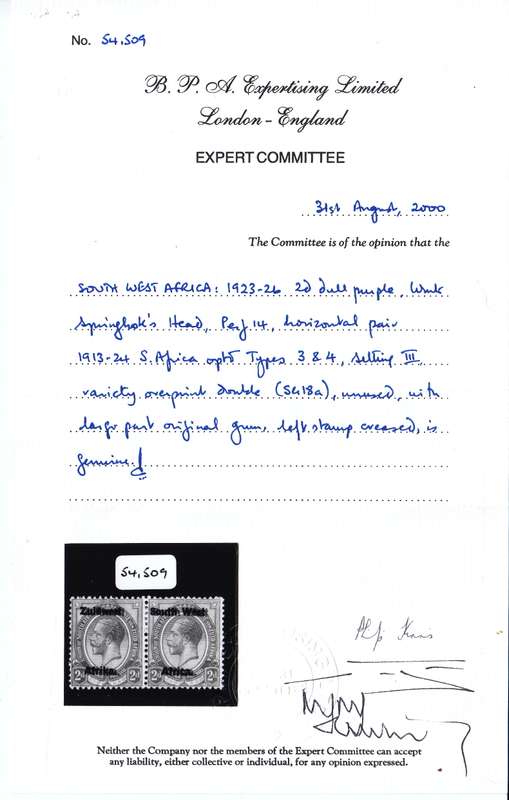 No. 54,509
B. P. A. Expertising Limited
London - England
EXPERT COMMITTEE
31st August, 2000
The Committee is of the opinion that the
SOUTH WEST AFRICA: 1923-26 2d dull purple, Wmk
Springbok's Head, Perf 14, horizontal pair
1913-24 S. Africa optd Types 3 & 4, setting III
variety overprint double (SG18a), unused, with
large part original gum, left stamp creased, is
genuine.
54,509
Zuidwest South West
Afrika. Africa.
2d 2d
Neither the Company nor the members of the Expert Committee can accept
any liability, either collective or individual, for any opinion expressed.